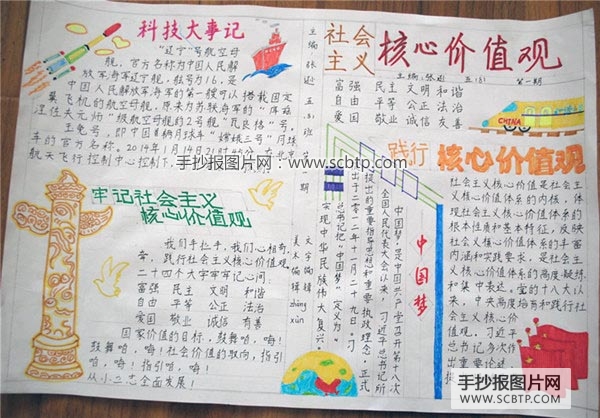 科技大事记
"辽宁"号航空母
舰，官方名称为中国人民解
放军海军辽宁舰，舷号为16，是
中国人民解放军海军的第一艘可以搭载固定
翼飞机的航空母舰，原来为苏联海军的"库兹
涅佐夫元帅"级航空母舰的2号舰"瓦良格"号。
车的官方名称。2014年1月14日21时45分，在北京
航天飞行控制中心控制下
主编 张逊 五(8)班
一期
社会
主义
核心价值观
主编：张逊 五(8) 第一期
富强 民主 文明 和谐
自由 平等 公正 法治
爱国 敬业 诚信 友善
CHINA
手抄报图片网：www.scbtp.com
牢记社会主义
核心价值观
我们手拉手，我们心相牵，
践行社会主义核心价值观，
二十四个大字牢牢记心间：
富强 民主 文明 和谐
自由 平等 公正 法治
爱国 敬业 诚信 友善
国家价值的目标，鼓舞咱，嗨！
鼓舞咱，嗨！社会价值的取向，指引
咱，嗨！指引咱，嗨！
从小立志全面发展！
文字编辑
美术编辑
zhāng
xùn
中国梦
中国梦，是中国共产党召开第十八次
全国人民代表大会以来，习近平总书记所
提出的重要指导思想和重要执政理念，正式
出于二零一二年十一月二十九日。习
总书记把"中国梦"定义为"
实现中华民族伟大复兴"
践行
核心价值观
社会主义核心价值是社会主
义核心价值体系的内核，体
现社会主义核心价值体系的
根本性质和基本特征，反映
社会主义核心价值体系的丰富
内涵和实践要求，是社会主
义核心价值体系的高度凝练
和集中表达。党的十八大以
来，中央高度培育和践行社
会主义核心价
值观，习近平
总书记多次作
出重要论述、
手抄报图片网
SCBTP.COM